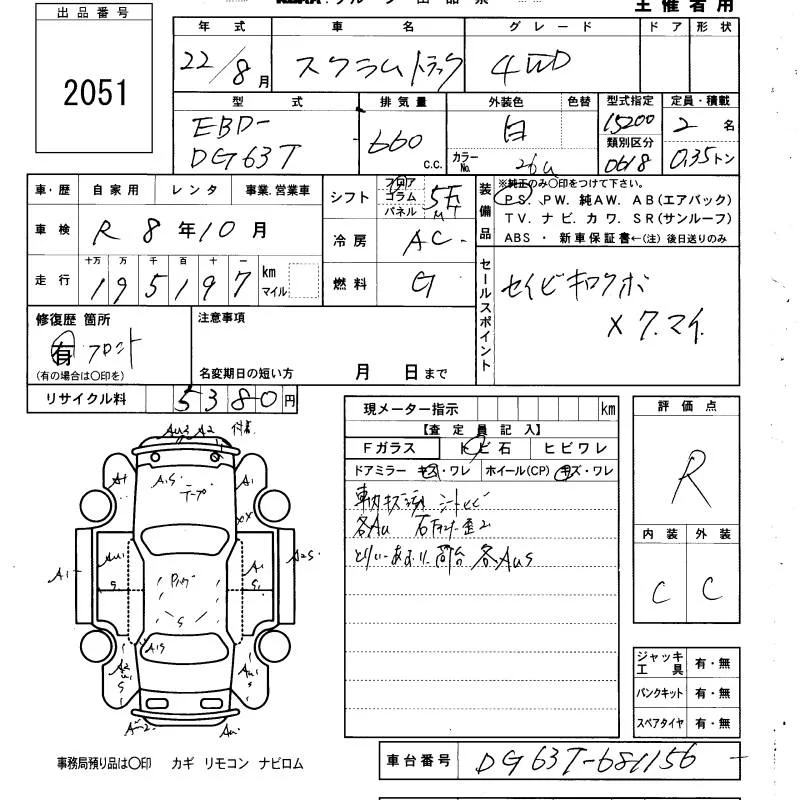 主催者用
出品番号
2051
年式 車名 グレード ドア 形状
22/8月 スクラムトラック 4WD
型式 排気量 外装色 色替 型式指定 定員・積載
EBD-
DG63T 660 c.c. 白 15200 2名
カラーNo. 26U 類別区分 0618 0.35トン
車・歴 自家用 レンタ 事業.営業車
シフト フロア コラム パネル 5F
装備品 ※純正のみ〇印をつけて下さい。
PS. PW. 純AW. AB(エアバック)
TV. ナビ. カワ. SR(サンルーフ)
ABS ・ 新車保証書←(注) 後日送りのみ
車検 R 8年10月
冷房 AC
走行 十万 万 千 百 十 一
195197 km マイル
燃料 G
セールスポイント セイビキロクボ
×7.マイ.
修復歴 箇所 注意事項
有 フロント
(有の場合は〇印を) 名変期日の短い方 月 日まで
リサイクル料 5380円
現メーター指示 km
【査定員記入】
Fガラス トビ石 ヒビワレ
ドアミラー キズ・ワレ ホイール(CP) キズ・ワレ
各AU
評価点
R
内装 外装
C C
AU3 A2
A1 A.S A1
テープ
XX
A1 AU A1 A2S
S S
S
A1S
A2 AU
S S
A-2 AU
ジャッキ工具 有・無
パンクキット 有・無
スペアタイヤ 有・無
事務局預り品は〇印 カギ リモコン ナビロム
車台番号 DG63T-681156